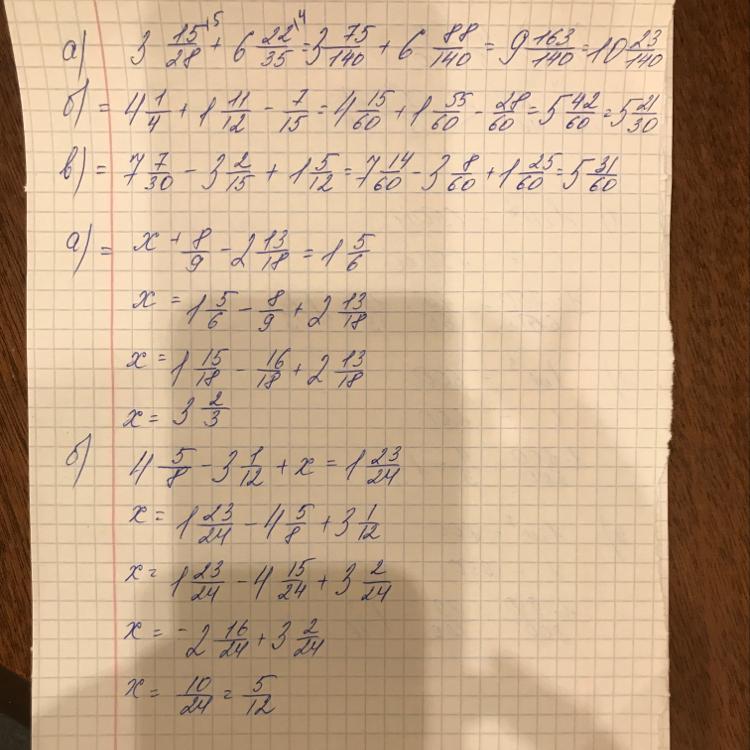 а) 3 15/28 ⁵ + 6 22/35 ⁴ = 3 75/140 + 6 88/140 = 9 163/140 = 10 23/140
б) = 4 1/4 + 1 11/12 - 7/15 = 4 15/60 + 1 55/60 - 28/60 = 5 42/60 = 5 21/30
в) = 7 7/30 - 3 2/15 + 1 5/12 = 7 14/60 - 3 8/60 + 1 25/60 = 5 31/60
а) = x + 8/9 - 2 13/18 = 1 5/6
x = 1 5/6 - 8/9 + 2 13/18
x = 1 15/18 - 16/18 + 2 13/18
x = 3 2/3
б) 4 5/8 - 3 1/12 + x = 1 23/24
x = 1 23/24 - 4 5/8 + 3 1/12
x = 1 23/24 - 4 15/24 + 3 2/24
x = -2 16/24 + 3 2/24
x = 10/24 = 5/12